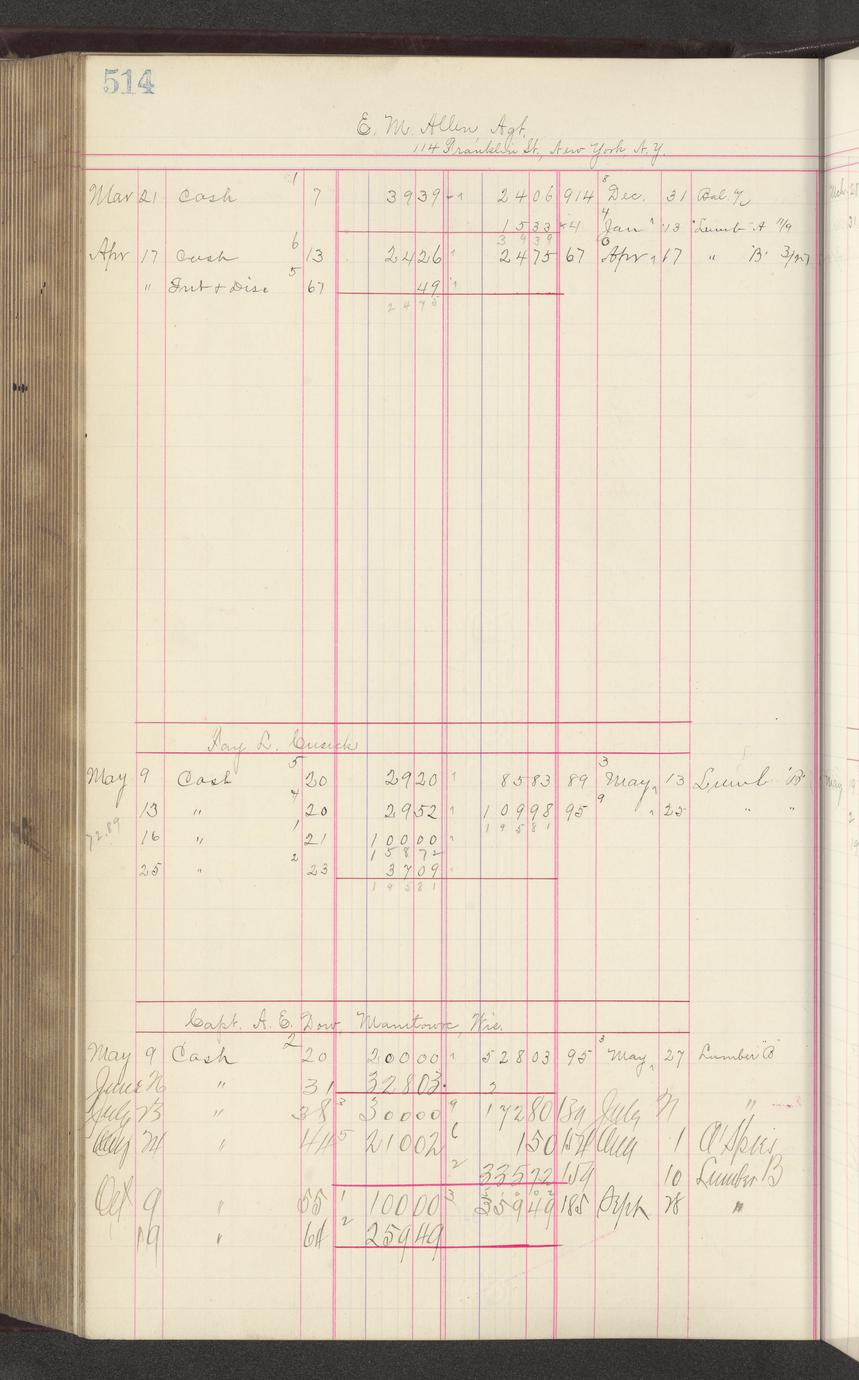 514
E. M. Allen, Agt.
114 Franklin St., New York N.Y.
1 8
Mar 21 Cash 7 3939 2406 914 Dec. 31 Bal.
4
1533 Jan 13 Lumb A 11/9
6 3939 6
Apr 17 Cash 13 2426 2475 67 Apr 17 " "B"
5
" Int & Disc 67 49
2475
Fay L. Cusick
5 3
May 9 Cash 20 2920 8583 89 May 13 Lumb "B"
4 9
13 " 20 2952 10998 95 " 25 " "
72.89 1 19581
16 " 21 10000
2 15872
25 " 23 3709
19581
Capt. A. E. Dow, Manitowoc, Wis.
2 3
May 9 Cash 20 20000 52803 95 May 27 Lumber "B"
June 26 " 31 32803
July 23 " 38 3 30000 9 17280 139 July 21 "
Aug 24 " 44 5 21002 6 150 154 Aug 1
2 33572 159 10 Lumber B
Oct 9 " 55 1 10000 3 35949 185 Sept 28 "
19 " 61 2 25949